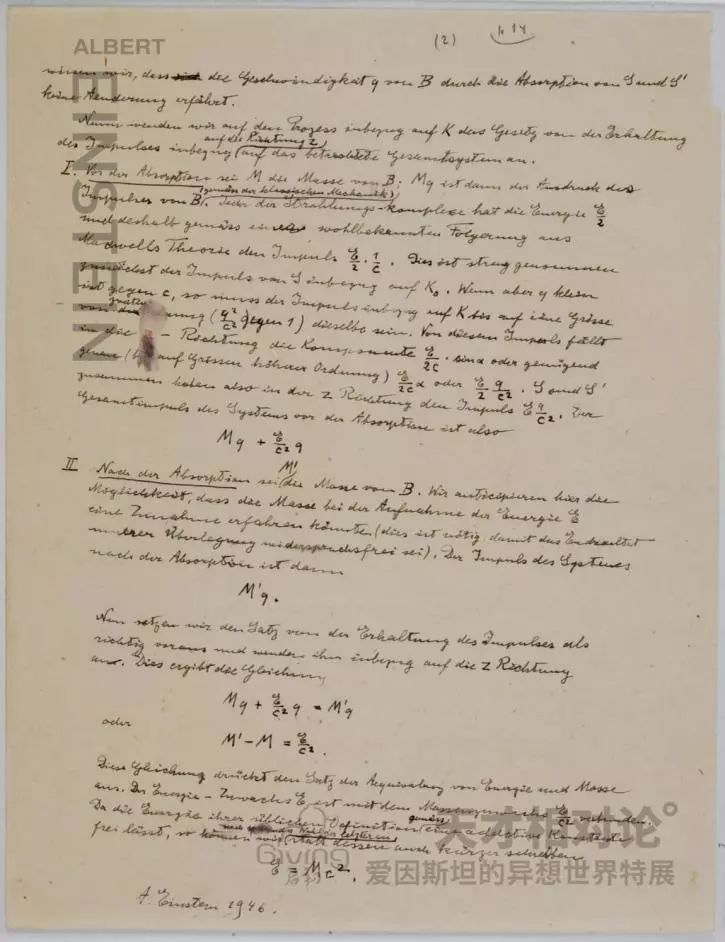 ALBERT
EINSTEIN
(2)
wissen wir, dass die Geschwindigkeit q von B durch die Absorption von S und S'
keine Aenderung erfährt.
Nun wenden wir auf den Prozess inbezug auf K das Gesetz von der Erhaltung
auf die Richtung z
des Impulses inbezug auf das betrachtete Gesamtsystem an.
I. Vor der Absorption sei M die Masse von B; Mq ist dann der Ausdruck des
(gemäss der klassischen Mechanik)
Impulses von B. Jeder der Strahlungs-Komplexe hat die Energie E/2
und deshalb gemäss einer wohlbekannten Folgerung aus
Maxwells Theorie den Impuls E/2 · 1/c. Dies ist streng genommen
zunächst der Impuls von S inbezug auf K₀. Wenn aber q klein
ist gegen c, so muss der Impuls inbezug auf K bis auf eine Grösse
von (q²/c² gegen 1) dieselbe sein. Von diesem Impuls fällt
in die - Richtung die Komponente E/2c · sin α oder genügend
genau (auf Grössen höherer Ordnung) E/2c α oder E/2 q/c². S und S'
zusammen haben also in der z Richtung den Impuls E q/c². Der
Gesamtimpuls des Systems vor der Absorption ist also
Mq + E/c² q
II Nach der Absorption sei M' die Masse von B. Wir anticipieren hier die
Möglichkeit, dass die Masse bei der Aufnahme der Energie E
eine Zunahme erfahren könnte (dies ist nötig, damit das Endresultat
unserer Überlegung widerspruchsfrei sei). Der Impuls des Systems
nach der Absorption ist dann
M'q.
Nun setzen wir den Satz von der Erhaltung des Impulses als
richtig voraus und wenden ihn inbezug auf die z Richtung
an. Dies ergibt die Gleichung
Mq + E/c² q = M'q
oder
M' - M = E/c².
Diese Gleichung drückt den Satz der Aequivalenz von Energie und Masse
aus. Der Energie-Zuwachs E ist mit dem Massenzuwachs E/c² verbunden.
Da die Energie ihrer üblichen Definition gemäss eine additive Konstante
frei lässt, so können wir statt dessen auch kürzer schreiben
E = Mc².
A. Einstein 1946.
天才相对论
爱因斯坦的异想世界特展